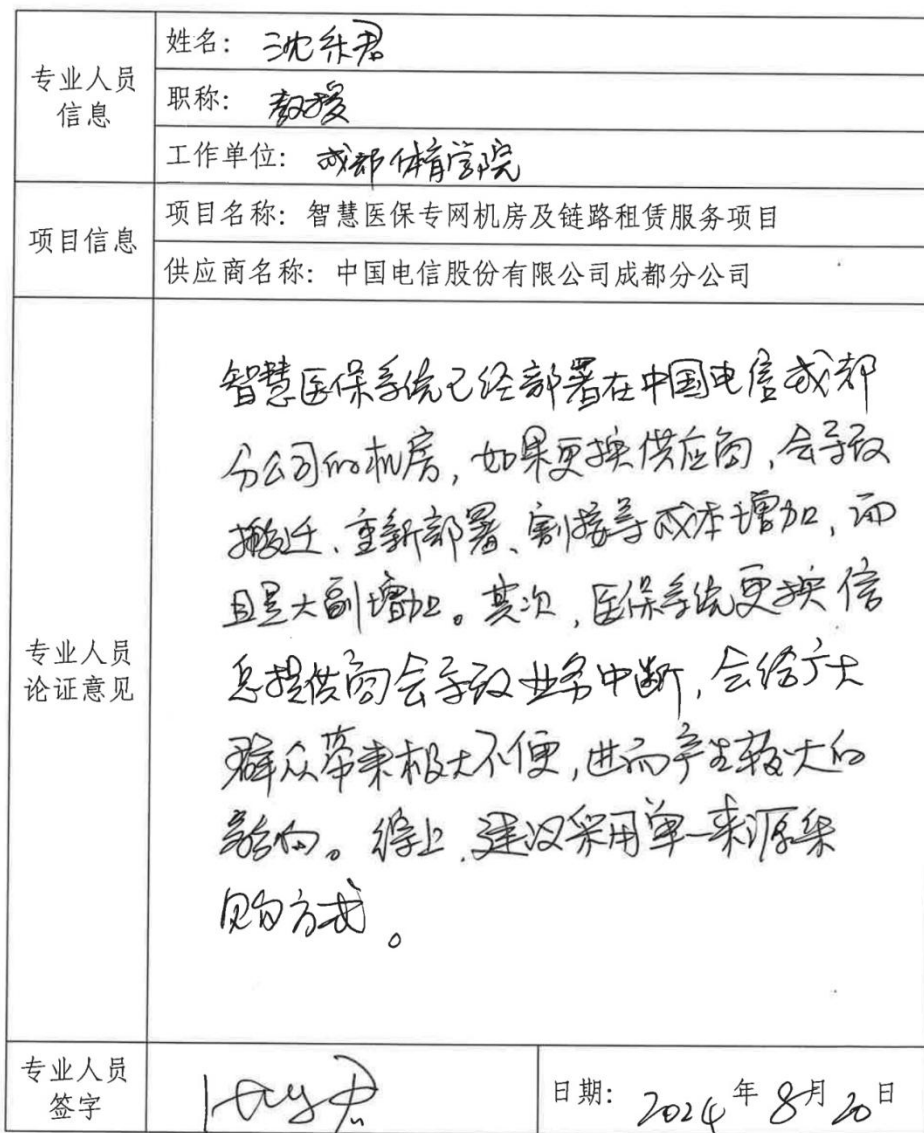 专业人员
信息
姓名: 沈乐君
职称: 教授
工作单位: 成都体育学院
项目信息
项目名称: 智慧医保专网机房及链路租赁服务项目
供应商名称: 中国电信股份有限公司成都分公司
专业人员
论证意见
智慧医保系统已经部署在中国电信成都
分公司的机房,如果更换供应商,会导致
搬迁、重新部署、割接等成本增加,而
且是大副增加。其次,医保系统更换信
息提供商会导致业务中断,会给广大
群众带来极大不便,进而产生较大的
影响。综上,建议采用单一来源采
购方式。
专业人员
签字
日期: 2024年8月20日